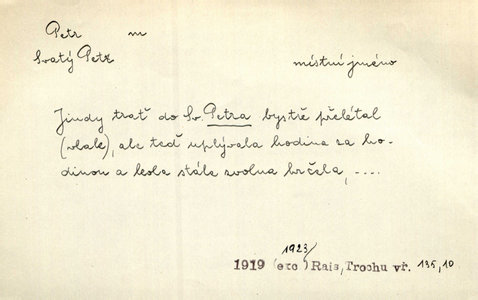 Petr m
Svatý Petr
místní jméno
Jindy trať do Sv. Petra bystře přelétal
(vlak), ale teď uplývala hodina za ho-
dinou a kola stále zvolna hrčela, ....
1923
1919 (exc ) Rais, Trochu vř. 135,10